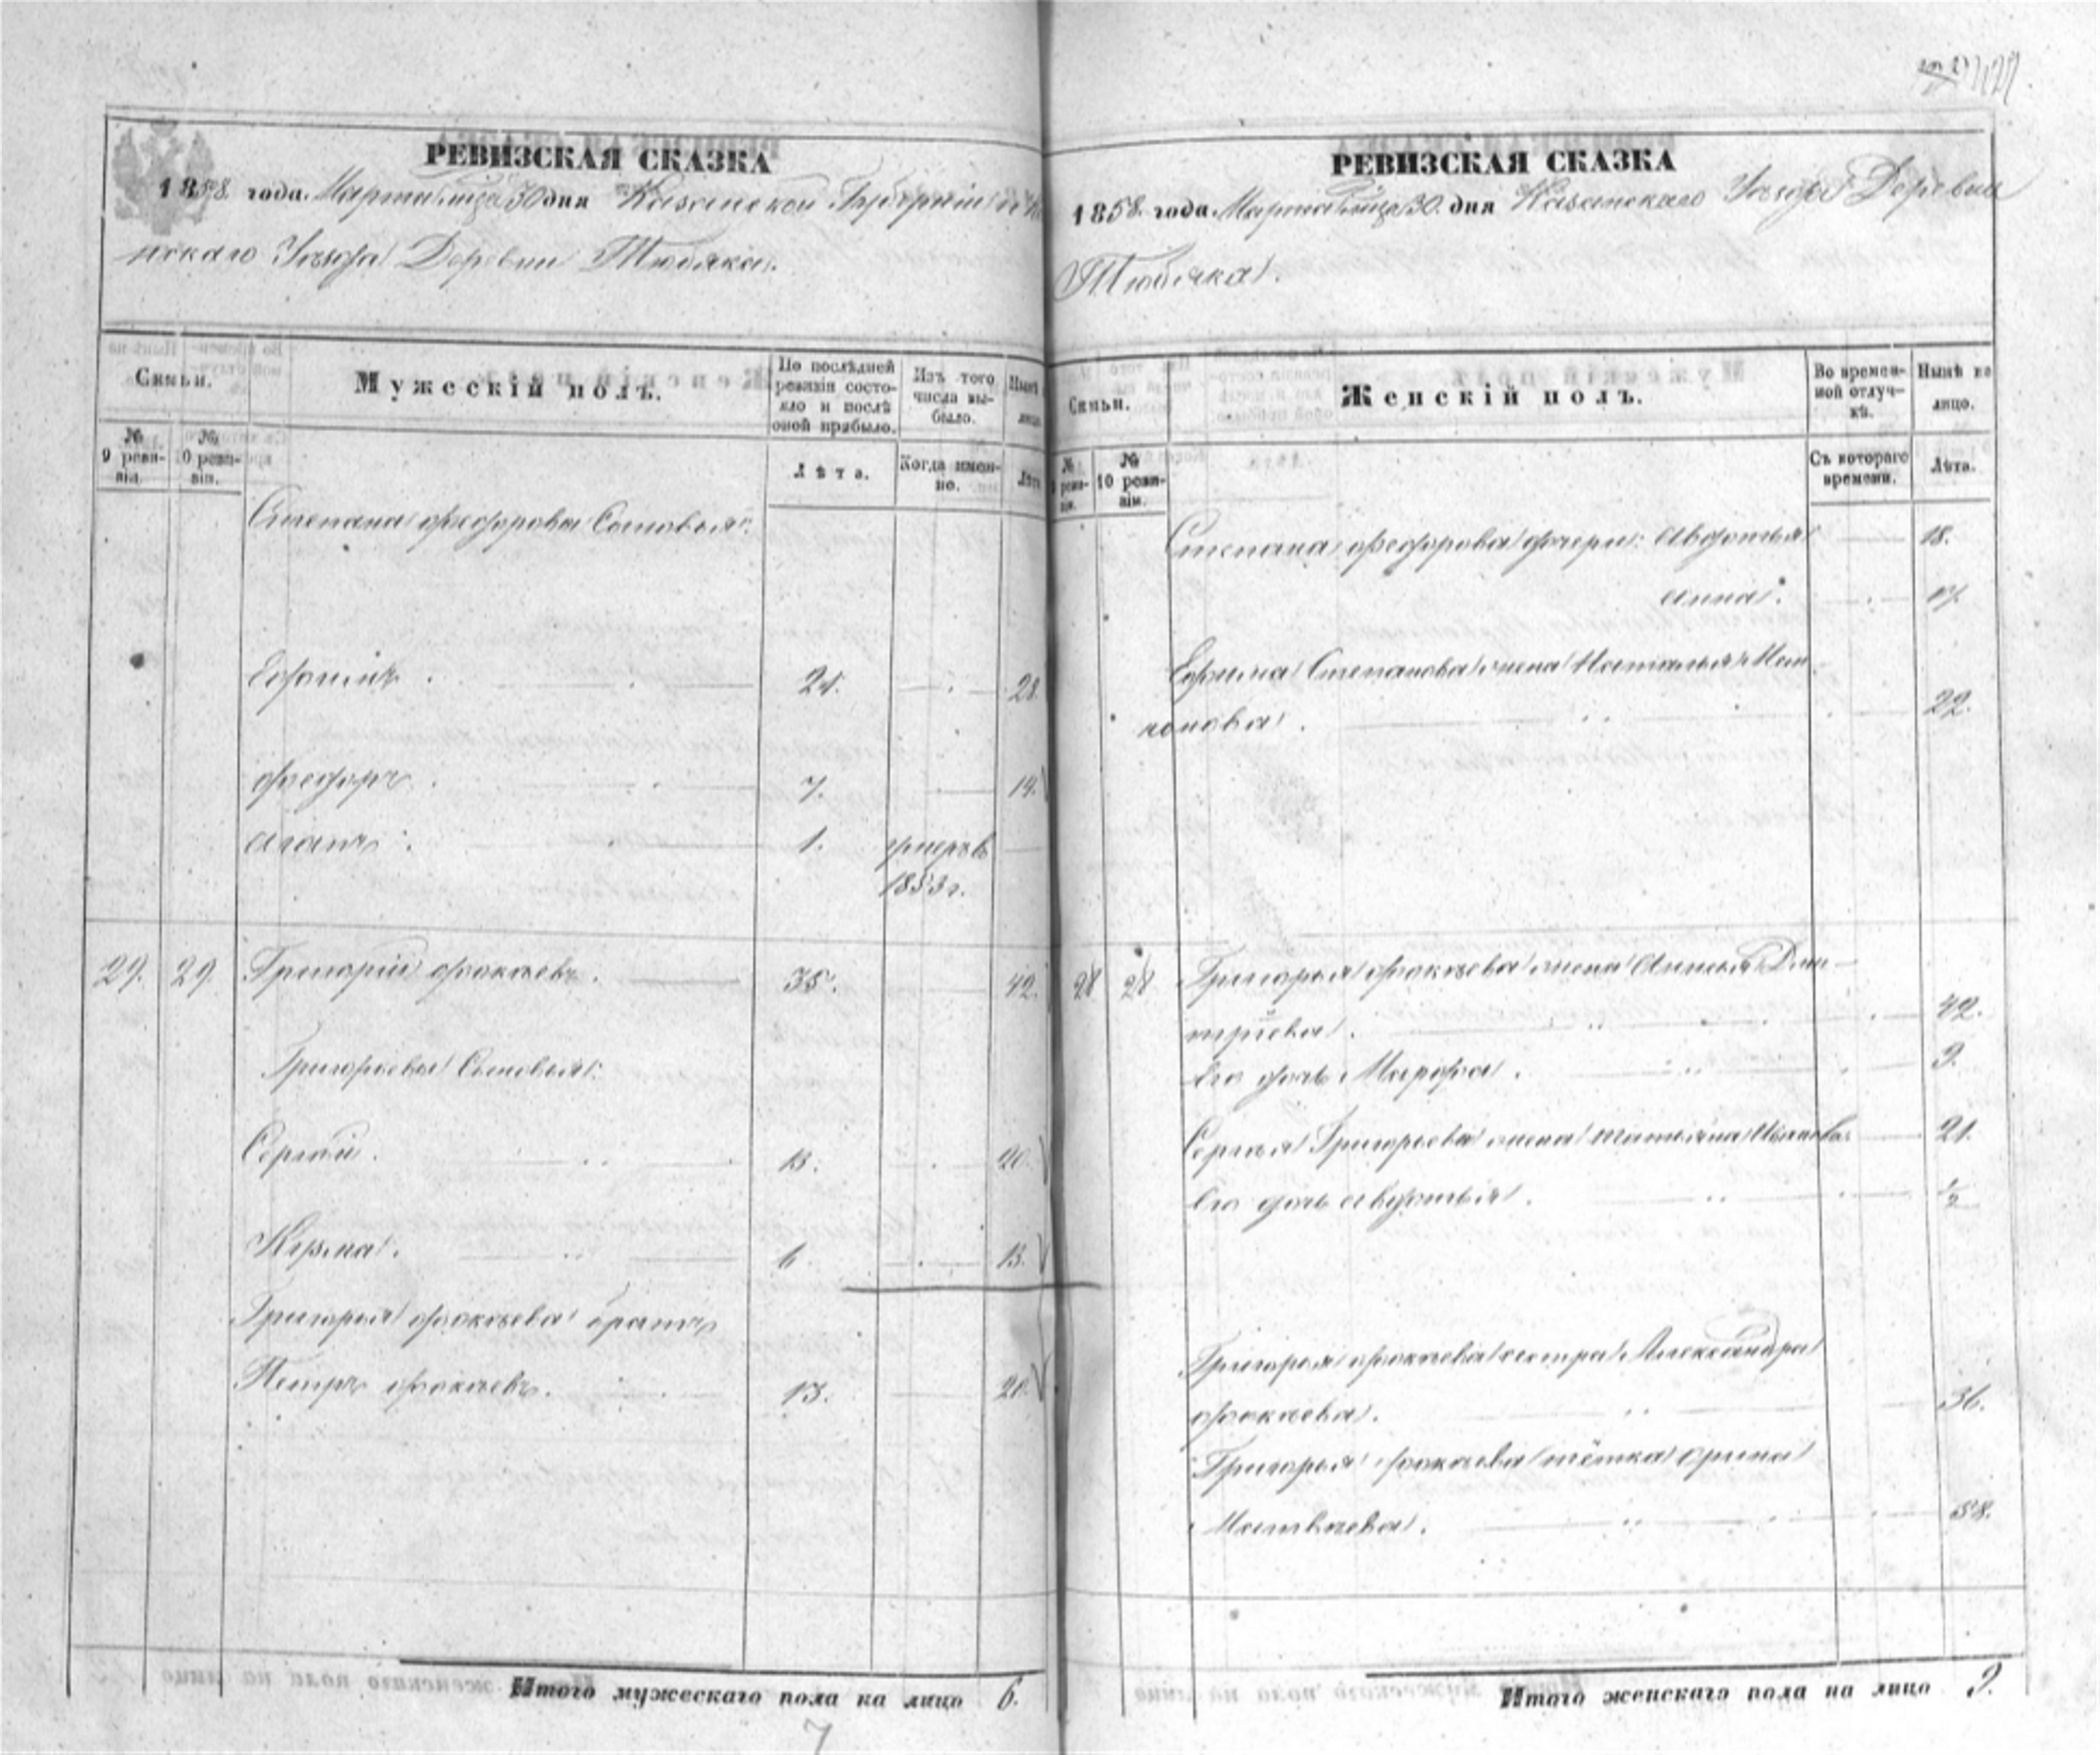 РЕВИЗСКАЯ СКАЗКА
1858. года. Марта м-ца 30 дня Казанской Губернии и Ка
нскаго Уезда Деревни Тюбяка.
Семьи.
Мужескій полъ.
По послѣдней ревизіи состояло и послѣ оной прибыло.
Изъ того числа выбыло.
Нынѣ
лицо
№ 9 ревизіи.
№ 10 ревизіи.
Лѣта.
Когда именно.
Лѣта
Степана Федорова Сыновья:
Ефимъ . 21. 28.
Федоръ . 7. 14.
Агапъ . 1. умеръ въ
1853 г.
29. 29. Григорій Фокаевъ . 35. 42.
Григорьевы Сыновья:
Сергѣй . 13. 20.
Кузма . 6 13.
Григорья Фокаева братъ
Петръ Фокаевъ . 13. 20.
Итого мужескаго пола на лицо 6.
7
РЕВИЗСКАЯ СКАЗКА
1858. года. Марта м-ца 30. дня Казанскаго Уезда Деревни
Тюбяка.
Семьи.
Женскій полъ.
Во временной отлучкѣ.
Нынѣ на лицо.
№ ревизіи.
№ 10 ревизіи.
Съ котораго времени.
Лѣта.
Степана Федорова дочери: Авдотья 18.
Анна . 17.
Ефима Степанова жена Наталья
22.
Григорья Фокаева жена Дми-
28 28
тріева . 42.
Его дочь Марфа . 9.
Сергѣя Григорьева жена Татьяна Иванова 21.
Его дочь Авдотья . ½
Григорья Фокаева сестра Александра
Фокаева . 36.
Григорья Фокаева тётка Орина
Матвѣева . 58.
Итого женскаго пола на лицо 9.